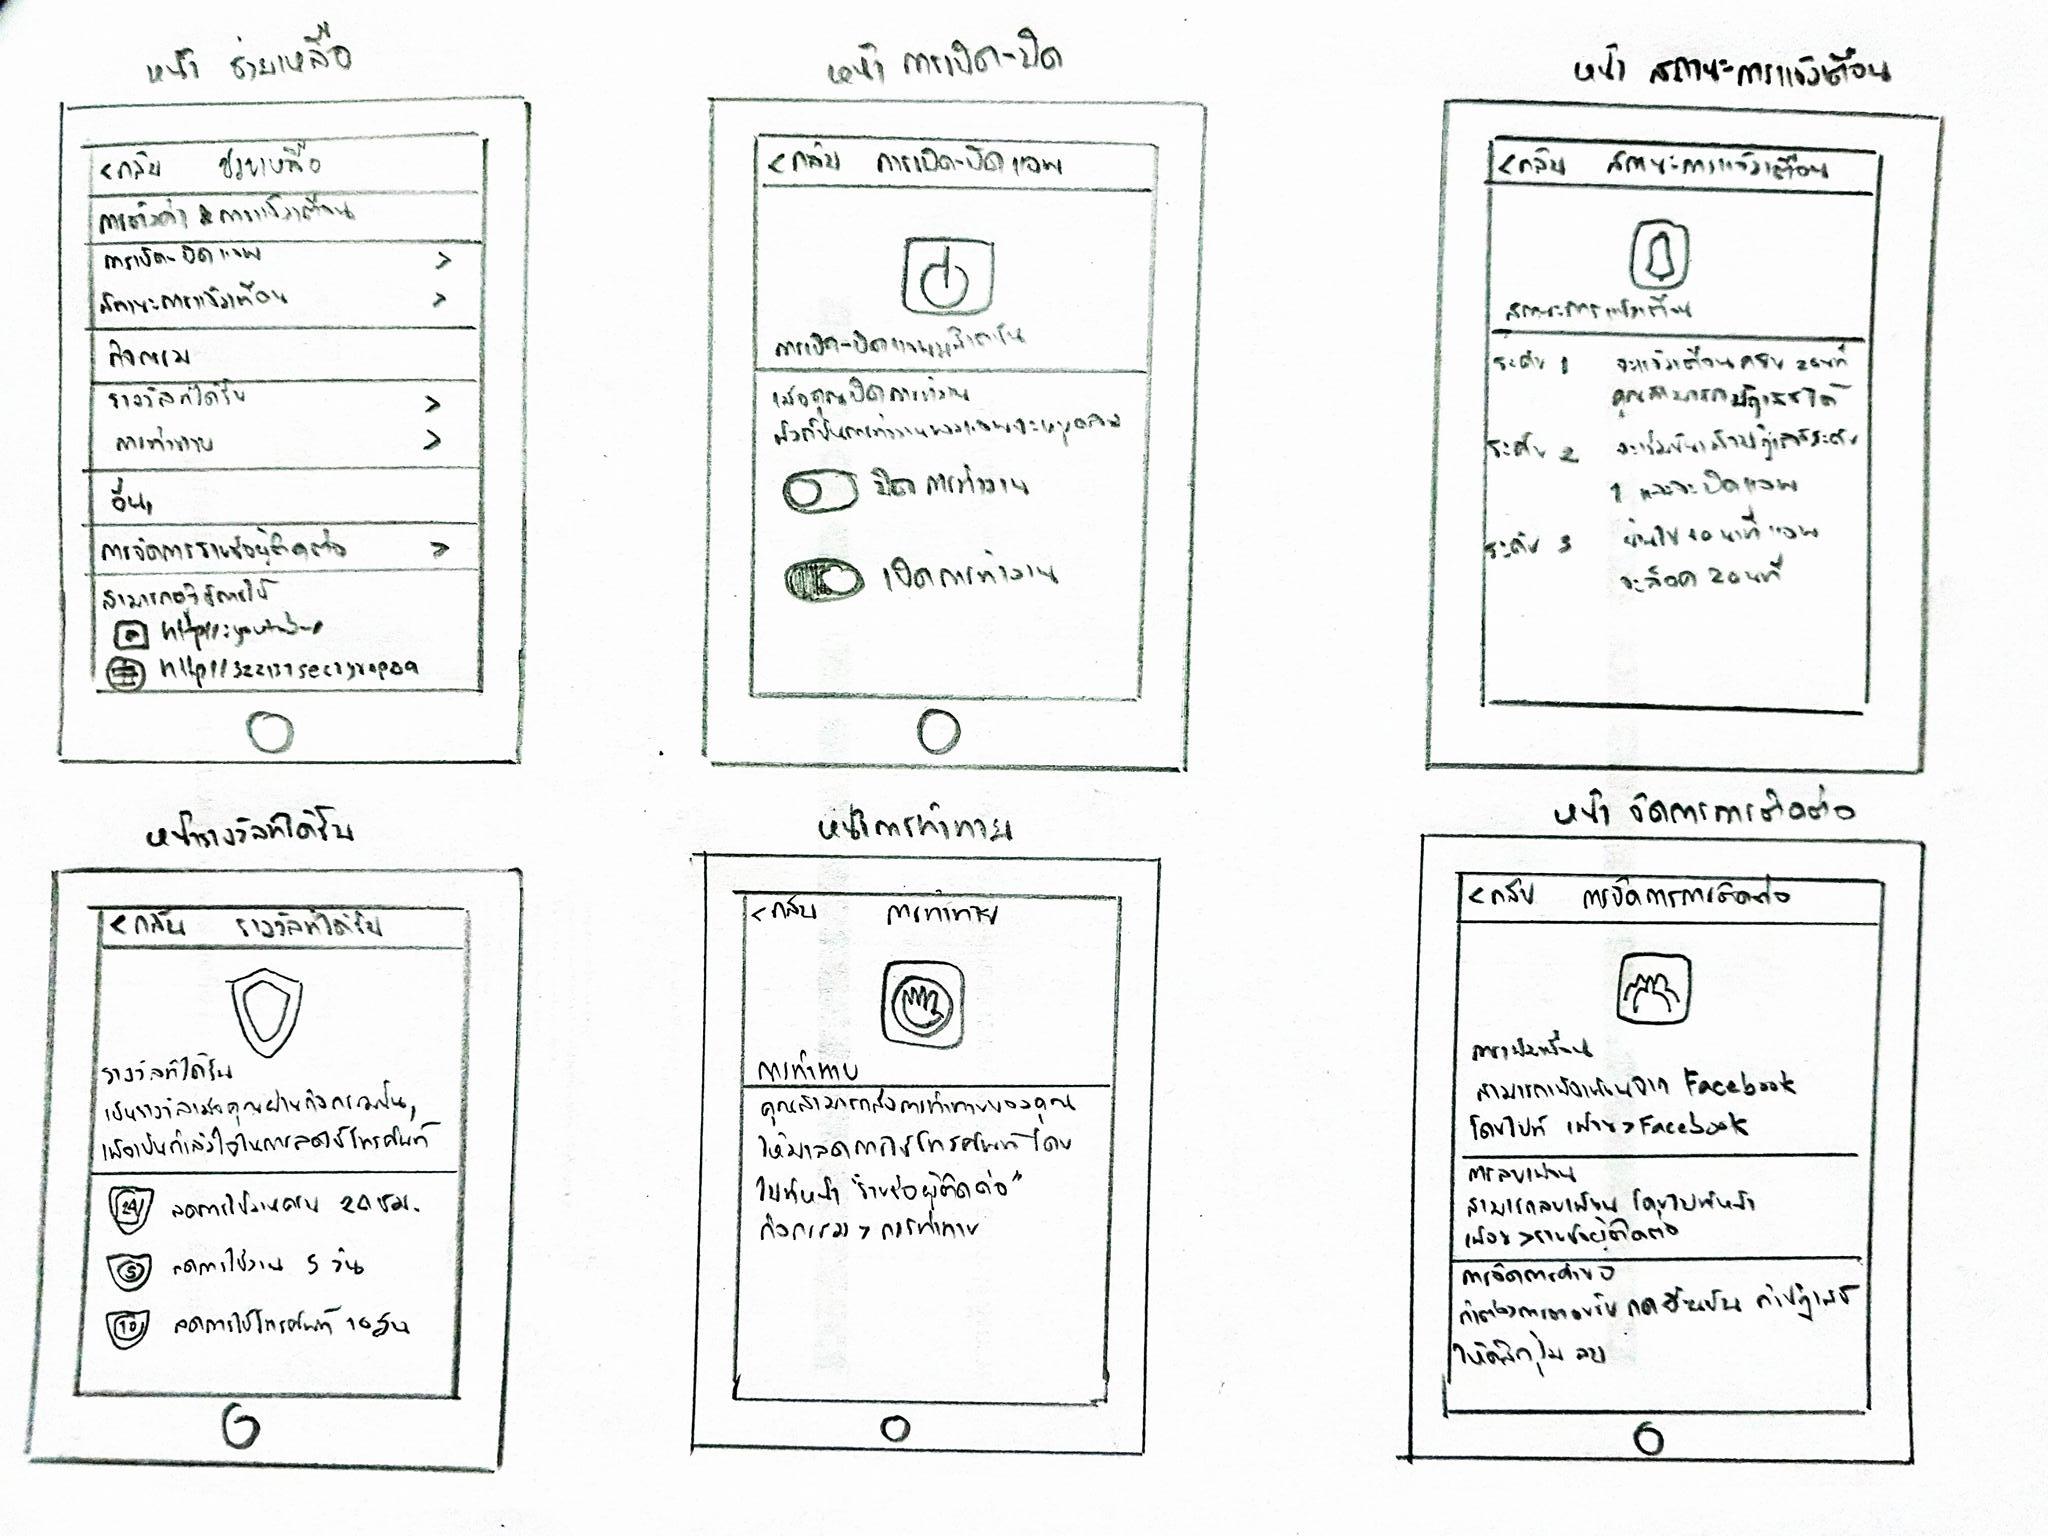 หน้า ช่วยเหลือ
<กลับ ช่วยเหลือ
การตั้งค่า & การแจ้งเตือน
การเปิด-ปิด แอพ >
สถานะการแจ้งเตือน >
กิจกรรม
รางวัลที่ได้รับ >
การท้าทาย >
อื่นๆ
การจัดการรายชื่อผู้ติดต่อ >
หน้า การเปิด-ปิด
<กลับ การเปิด-ปิด แอพ
เมื่อคุณปิดการทำงาน
ฟังก์ชันการทำงานของแอพจะหยุดลง
ปิดการทำงาน
เปิดการทำงาน
หน้า สถานะการแจ้งเตือน
<กลับ สถานะการแจ้งเตือน
สถานะการแจ้งเตือน
ระดับ 1 จะแจ้งเตือนครบ 20นาที
คุณสามารถปฏิเสธได้
ระดับ 2
1 และจะปิดแอพ
ระดับ 3 ผ่านไป 10 นาที แอพ
จะล็อค 20นาที
หน้ารางวัลที่ได้รับ
<กลับ รางวัลที่ได้รับ
รางวัลที่ได้รับ
เป็นรางวัลเมื่อคุณผ่านกิจกรรมนั้นๆ
เพื่อเป็นกำลังใจในการลดใช้โทรศัพท์
24 ลดการใช้งานครบ 24 ชม.
5 ลดการใช้งาน 5 วัน
10 ลดการใช้โทรศัพท์ 10วัน
หน้าการท้าทาย
<กลับ การท้าทาย
การท้าทาย
คุณสามารถส่งการท้าทายของคุณ
ให้มาลดการใช้โทรศัพท์ โดย
ไปที่หน้า "รายชื่อผู้ติดต่อ"
กิจกรรม > การท้าทาย
หน้า จัดการการติดต่อ
<กลับ การจัดการการติดต่อ
การเพิ่มเพื่อน
สามารถเพิ่มเพื่อนจาก Facebook
โดยไปที่ เพิ่ม>Facebook
การลบเพื่อน
สามารถลบเพื่อน โดยไปที่หน้า
เพื่อน >รายชื่อผู้ติดต่อ
การจัดการคำขอ
ถ้าต้องการตอบรับ กดยืนยัน ถ้าปฏิเสธ
ให้คลิกไป ลบ